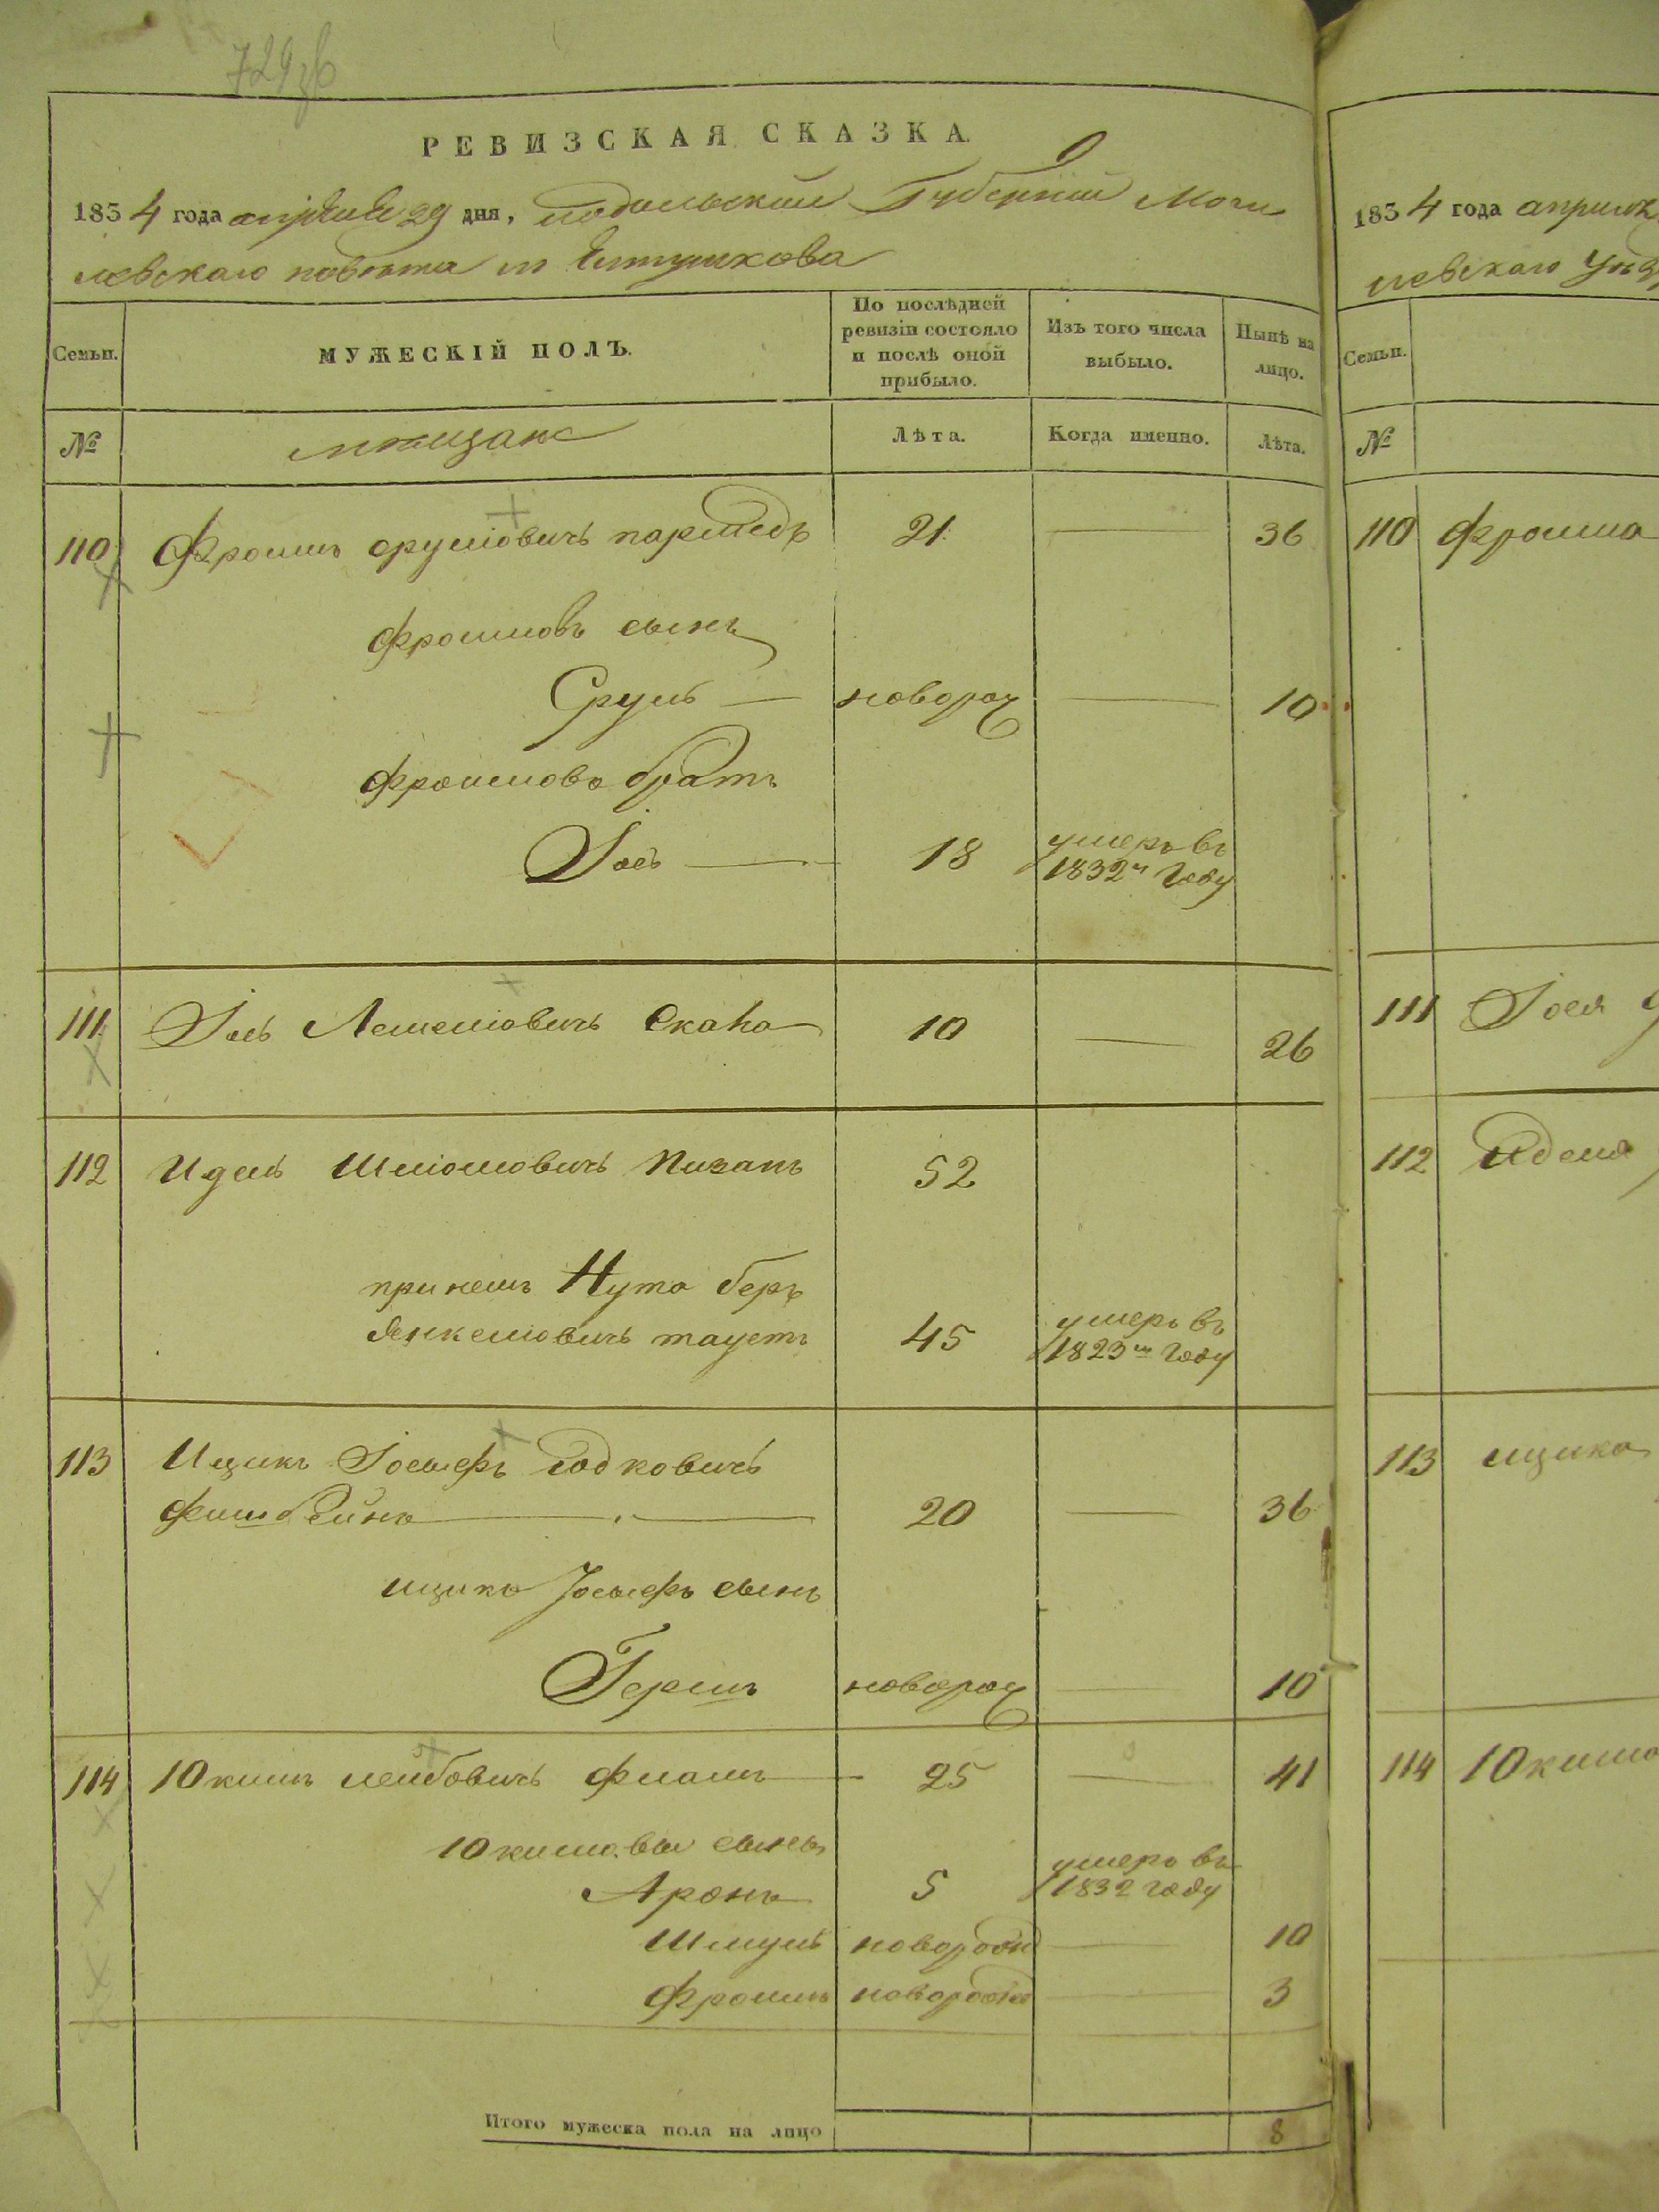 729 зв
РЕВИЗСКАЯ СКАЗКА.
1834 года апреля 29 дня, подольской Губернии Моги
левскаго повѣта м Елтушкова
Семьи.
МУЖЕСКІЙ ПОЛЪ.
По послѣдней ревизіи состояло и послѣ оной прибыло.
Изъ того числа выбыло.
Нынѣ на лицо.
№
мѣщане
Лѣта.
Когда именно.
Лѣта.
110 Фроимъ срулiовичъ 21. 36
фроимовъ сынъ
Сруль новорож 10
фроимовъ братъ
Іось 18 умеръ въ 1832м Году
111 Іось Лейзеліовичъ 10 26
112 Идель Шліомовичъ 52
примешъ Нута беръ
Янкеліовичъ таустъ 45 умеръ въ 1823м Году
113 Ицикъ Іосыфъ Іодковичъ
Фишбейнъ 20 36
ицикъ Іосыфъ сынъ
Гершъ новорож 10
114 Юкимъ лейбовичъ 25 41
Юкимовы сыны
Аронъ 5 умеръ въ 1832 году
Шмуль новорожд 10
Фроимъ новорожд 3
Итого мужеска пола на лицо 8
1834 года апреля
левскаго
Семьи.
№
110 Фроима
111 Іося
112 Иделя
113 ицика
114 Юкима